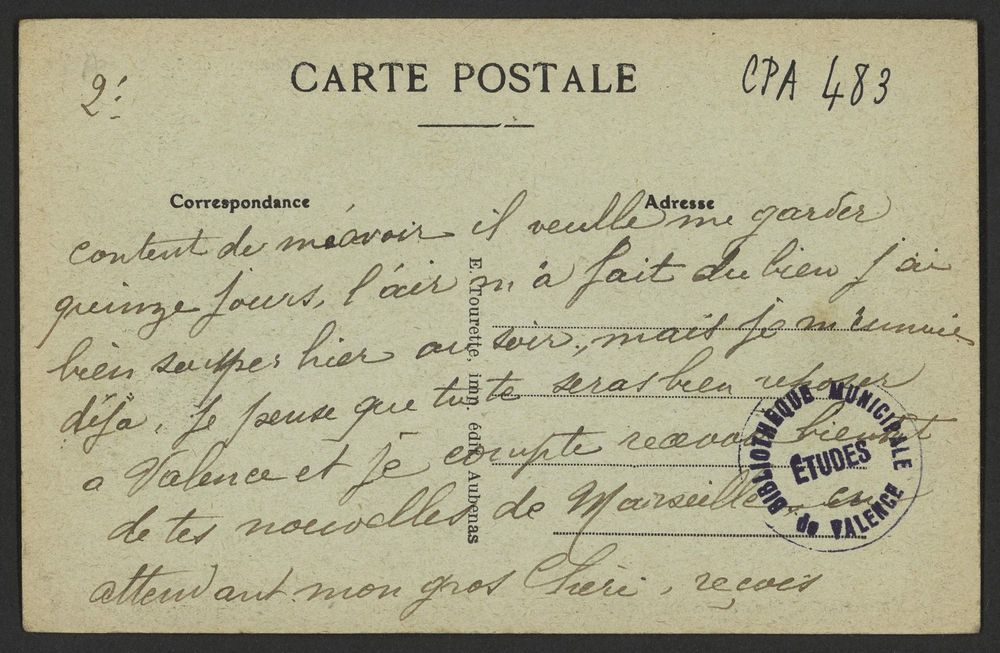 2:
CARTE POSTALE
CPA 483
Correspondance
Adresse
content de m'avoir il veuille me garder
quinze jours, l'air m'a fait du bien j'ai
bien souper hier au soir, mais je m'ennuie
déjà, je pense que tu te seras bien reposer
a Valence et je compte recevoir bientot
de tes nouvelles de Marseille, en
attendant mon gros Chéri, reçois
E. Tourette, imp. édit. Aubenas
BIBLIOTHÈQUE MUNICIPALE
ÉTUDES
de VALENCE